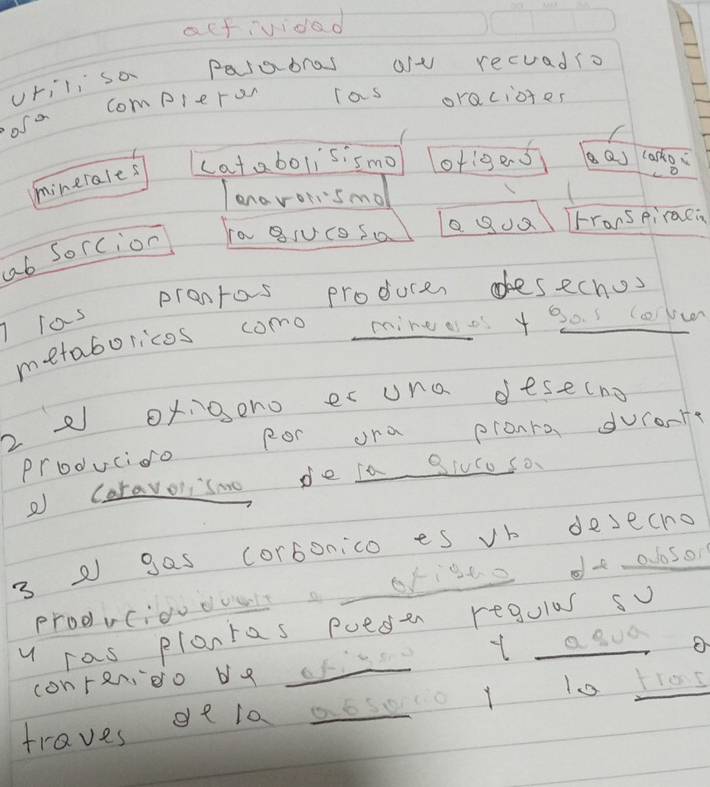 actividad
utilisa palabras del recuadro
para completar las oraciones
minerales catabolisismo oxigeno gas carboni
co
anavolismo
absorcion la glucosa agua transpiracin
1 las plantas producen desechos
metabolicos como minerales y gas carbon
2 el oxigeno es una desecho
producido por una planta durante
el catavolismo de la glucosa
3 el gas carbonico es un desecho
producido durante oxigeno de absor
4 las plantas pueden regular su
contenido de oxigeno y agua a
traves de la absorcio y la trans